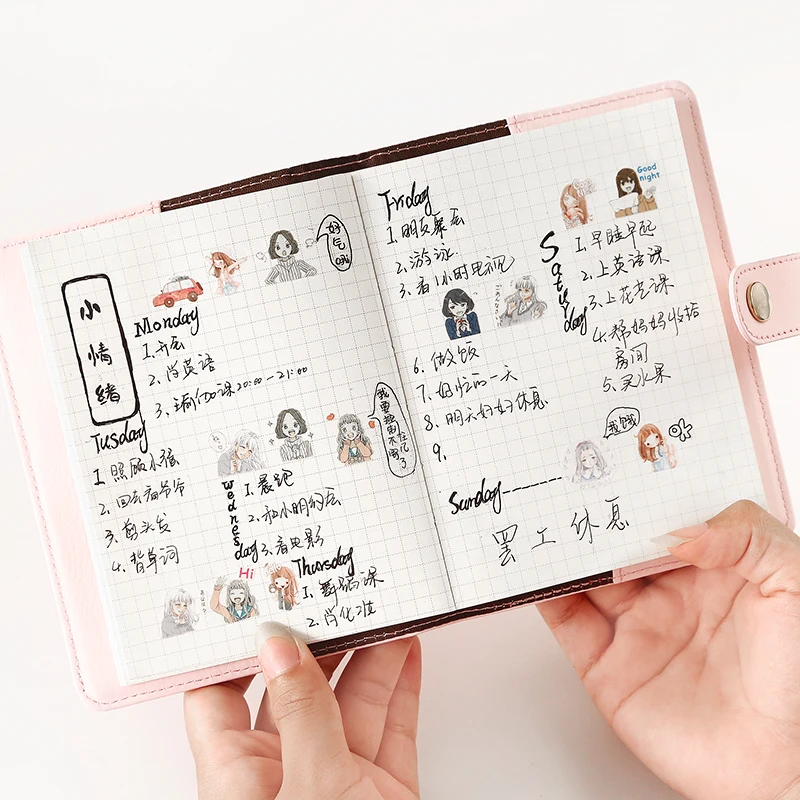 小情绪
好气哦
Monday
1. 开会
2. 背英语
3. 瑜伽课 20:00-21:00
Tusday
1. 照顾小孩
2. 回去看爷爷
3. 剪头发
4. 背单词
Wednesday
1. 晨跑
2. 和小明约会
3. 看电影
Hi
Thursday
1. 舞蹈课
2. 肖化
Friday
1. 朋友聚会
2. 游泳
3. 看1小时电视
6. 做饭
7. 好忙的一天
8. 明天好好休息
9.
Good night
Saturday
1. 早睡早起
2. 上英语课
3. 上花艺课
4. 帮妈妈收拾
房间
5. 买水果
我饿
Sunday------
罢工休息